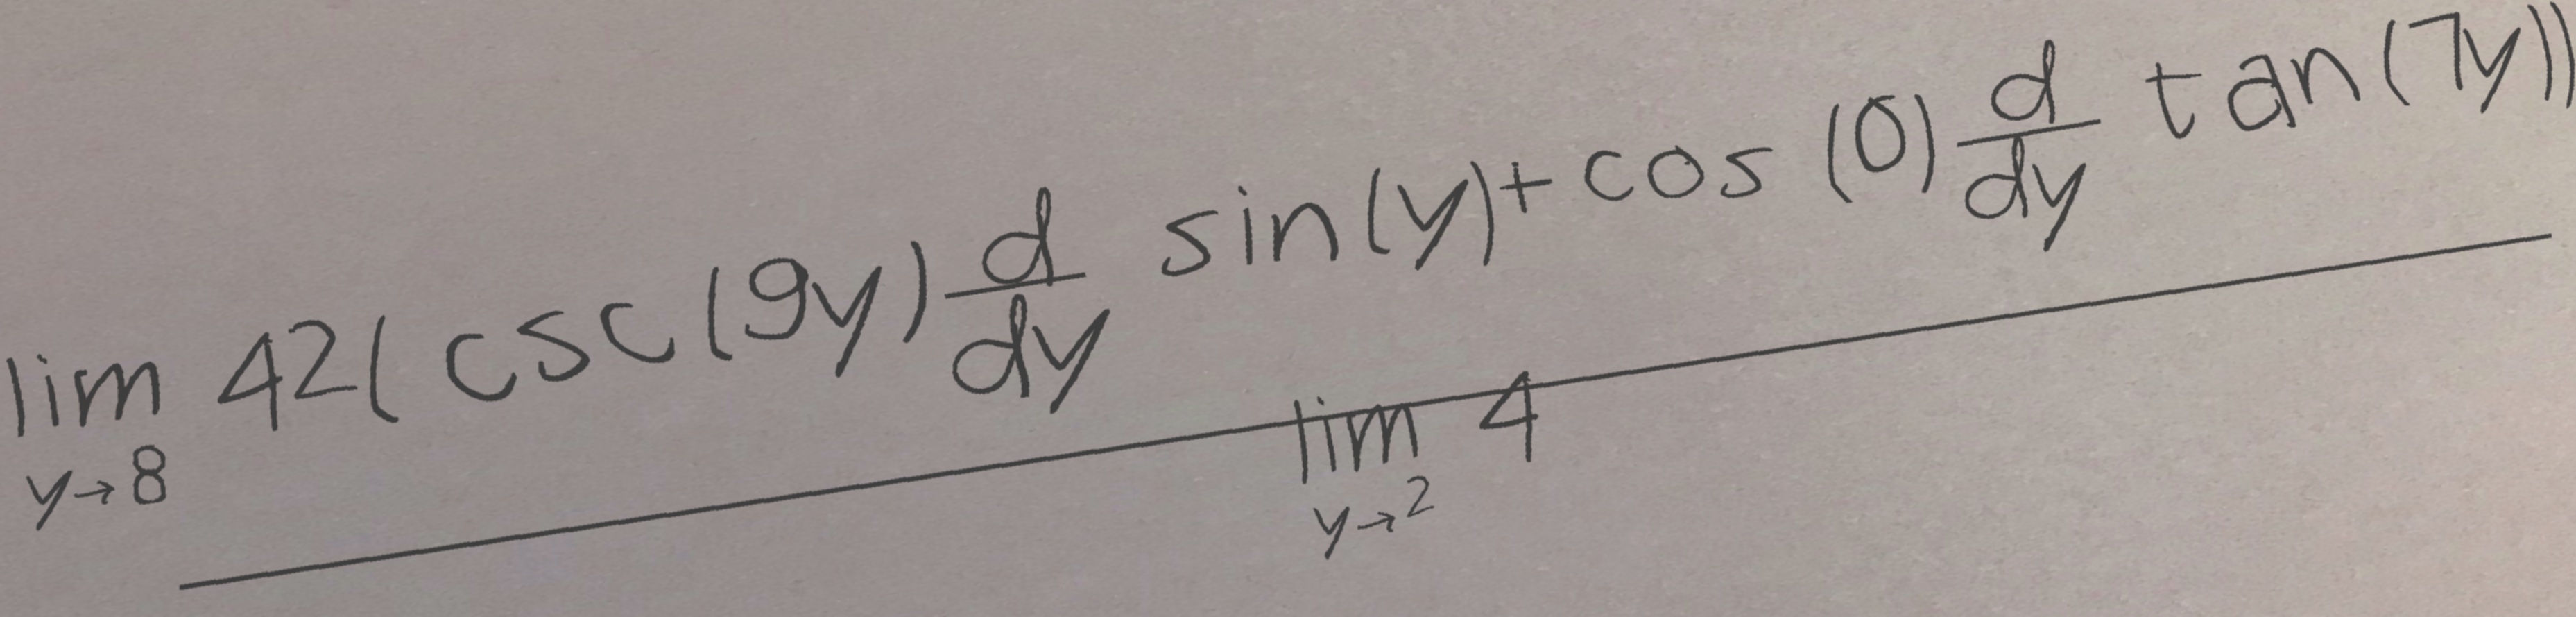 \frac{\lim_{y \to 8} 42(csc(9y) \frac{d}{dy} sin(y) + cos(0) \frac{d}{dy} tan(7y))}{\lim_{y \to 2} 4}